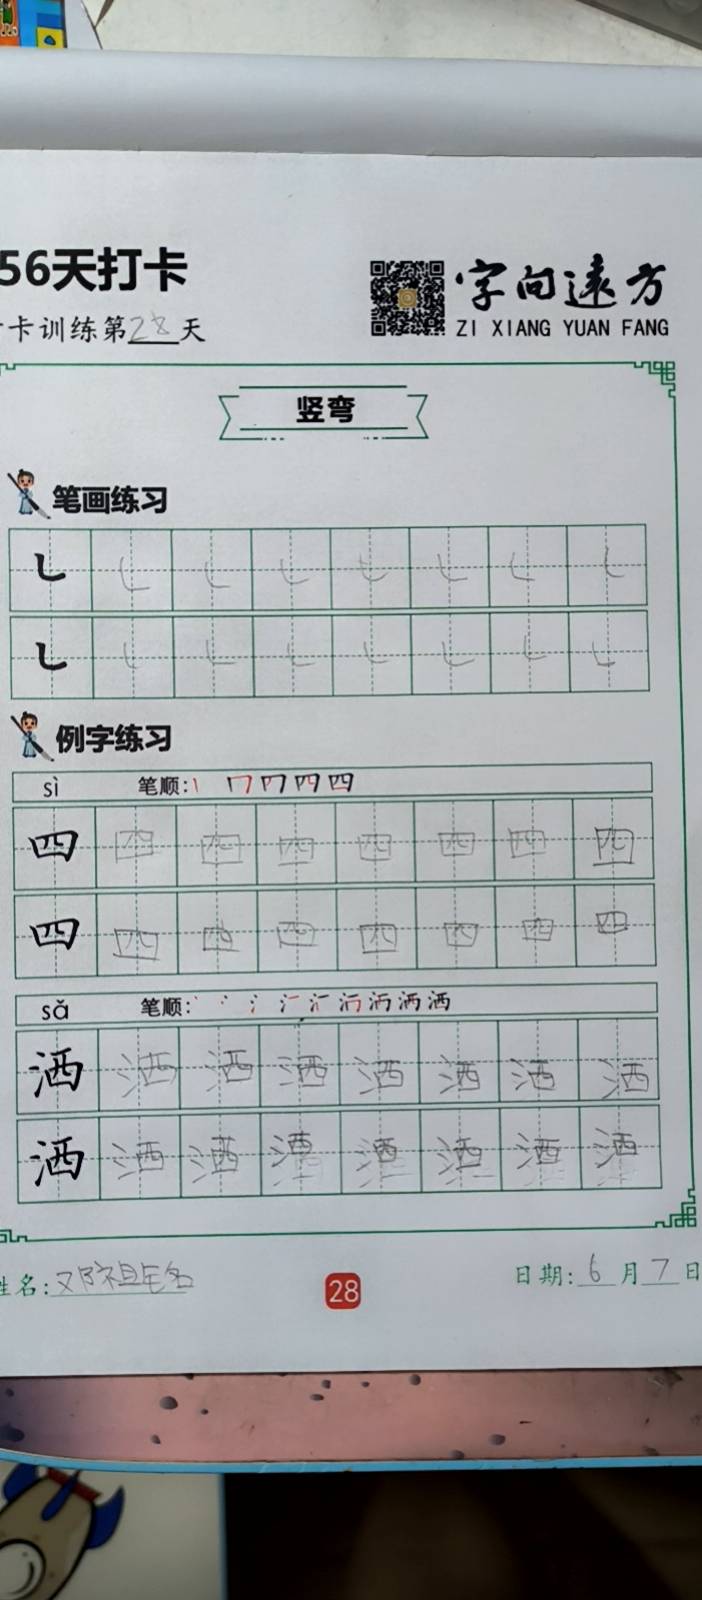 56天打卡
字向远方
卡训练第28天
ZI XIANG YUAN FANG
竖弯
笔画练习
例字练习
sì 笔顺:
四 四 四 四 四 四 四 四
四 四 四 四 四 四 四 四
sǎ 笔顺:
洒 洒 洒 洒 洒 洒 洒 洒
洒 洒 洒 洒 洒 洒 洒 洒
姓名: 邓祖铭
28
日期: 6月7日